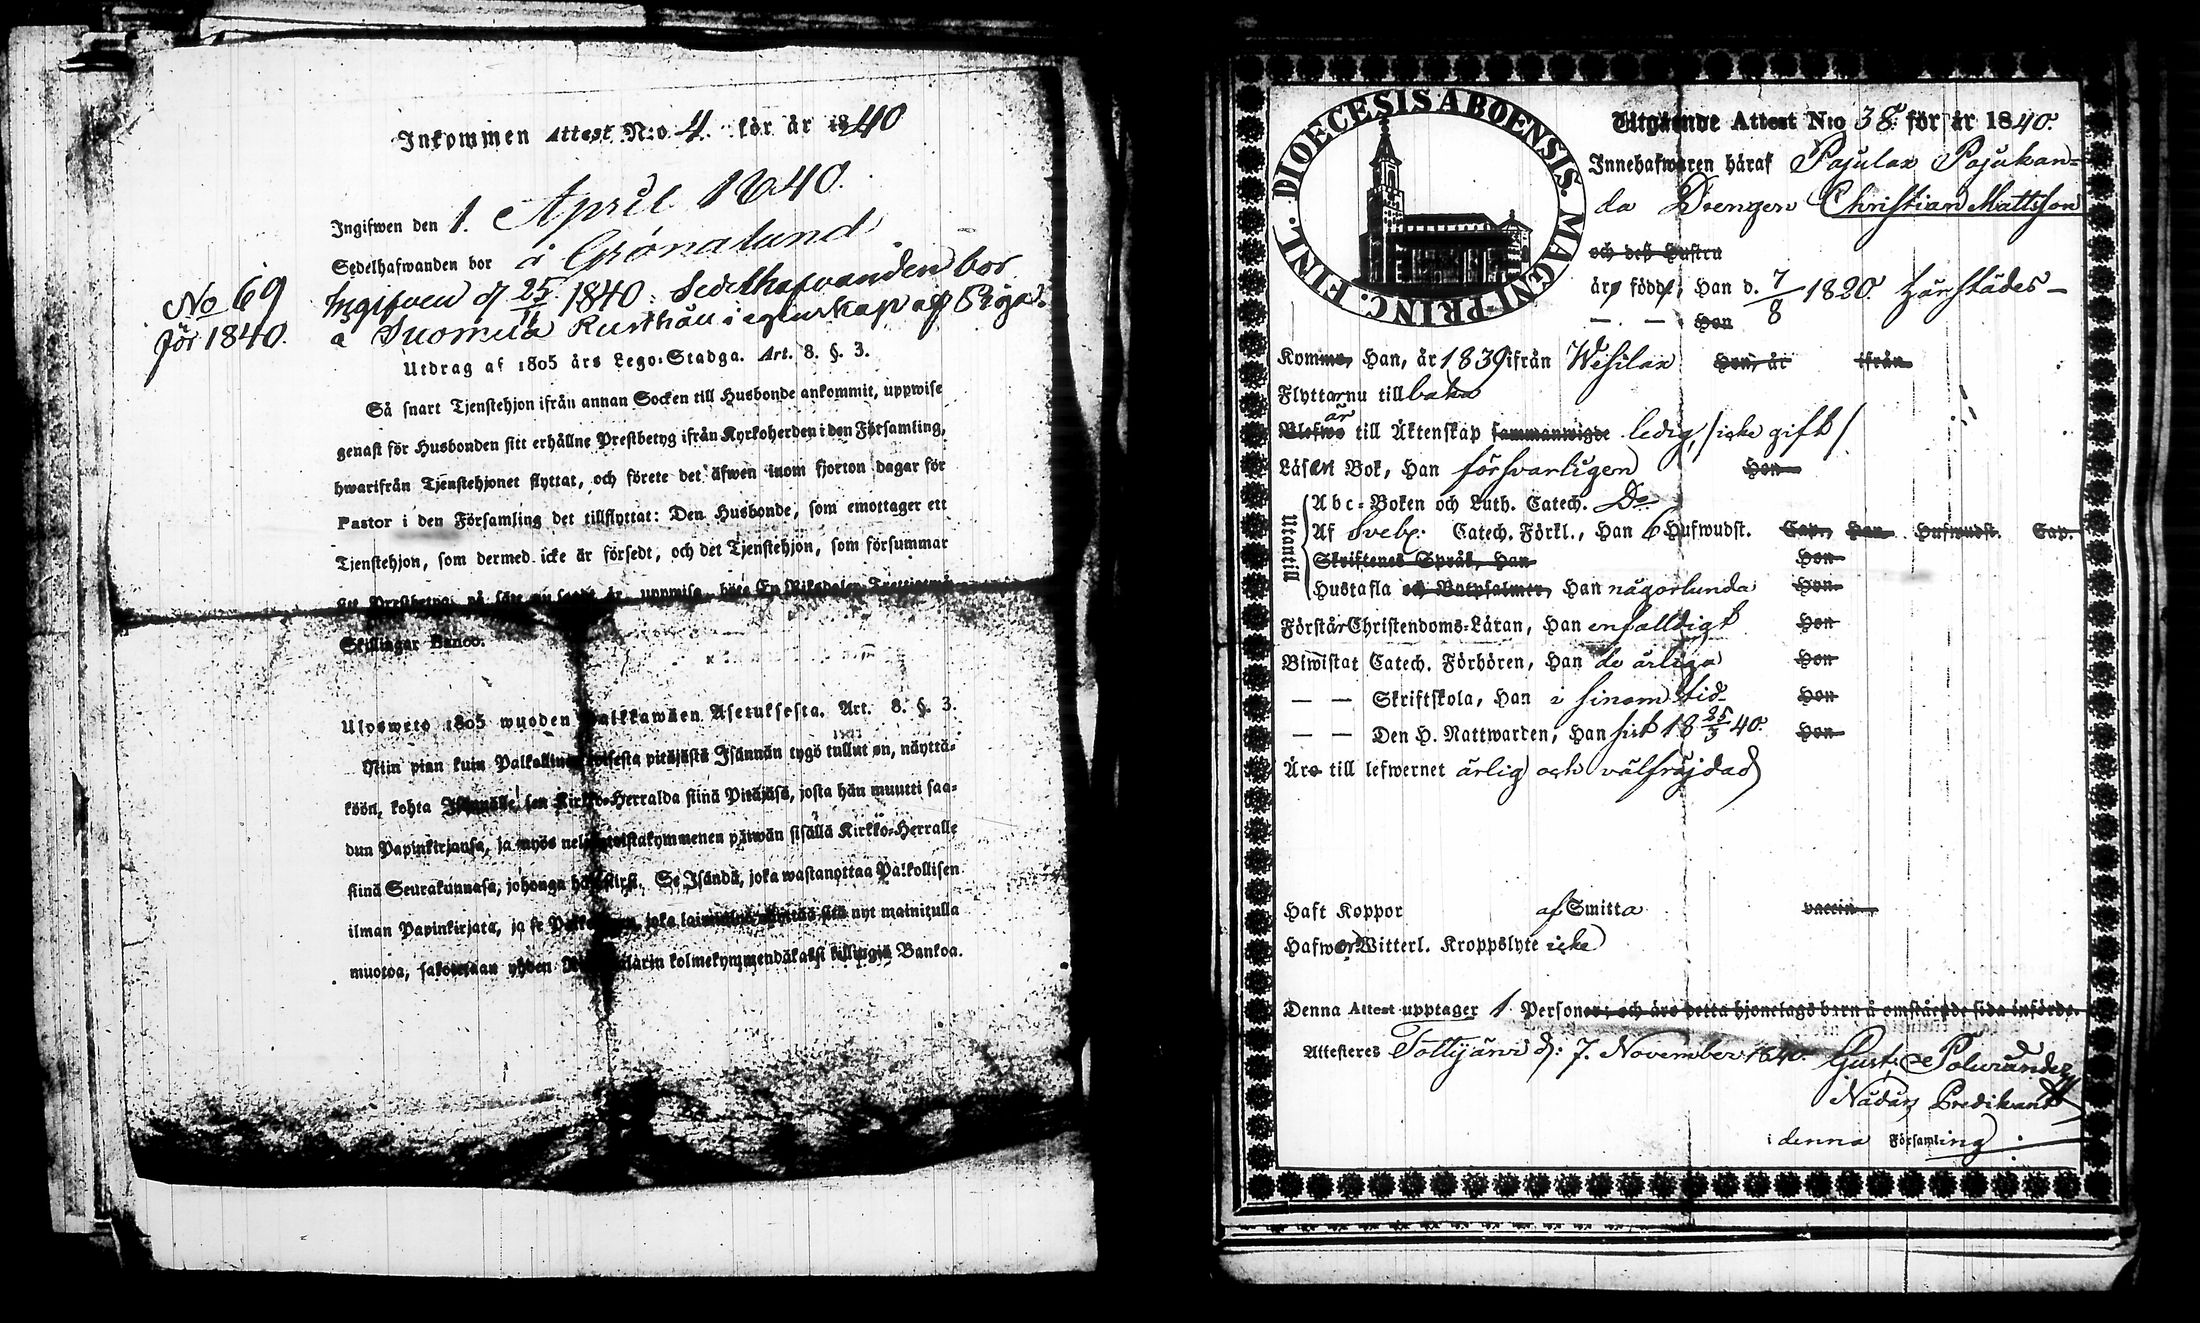 Inkommen Attest N:o 4. för år 1840
Ingifwen den 1. April 1840.
Sedelhafwanden bor å Grönalund
No 69
för 1840.
Ingifven d. 25/11 1840. Sedelhafvanden bor
å Suomela Rusthåll i egenskap af Piga.
Utdrag af 1805 års Lego-Stadga. Art. 8. §. 3.
Så snart Tjenstehjon ifrån annan Socken till Husbonde ankommit, uppwise
genast för Husbonden sitt erhållne Prestbetyg ifrån Kyrkoherden i den Församling,
hwarifrån Tjenstehjonet flyttat, och förete det äfwen inom fjorton dagar för
Pastor i den Församling det tillflyttat: Den Husbonde, som emottager ett
Tjenstehjon, som dermed icke är försedt, och det Tjenstehjon, som försummar
att Prestbetyg, på sätt nu sagdt är, uppwisa, böte En Riksdaler Trettiotwå
Skillingar Banco.
Ulosweto 1805 wuoden Palkkawäen Asetuksesta. Art. 8. §. 3.
Niin pian kuin Palkollinen toisesta pitäjästä Isännän tygö tullut on, näyttä-
köön, kohta Isännälle sen Kirkko-Herralda siinä Pitäjäsä, josta hän muutti saa-
dun Papinkirjansa, ja myös neljäntoistakymmenen päiwän sisällä Kirkko-Herralle
siinä Seurakunnasa, johonga hän siirsi. Se Isändä, joka wastanottaa Palkollisen
ilman Papinkirjata, ja se Palkollinen, joka laiminlyö näyttää sitä nyt mainitulla
muotoa, sakotetaan yhden Riksdalarin kolmekymmendäkaksi killingiä Bankoa.
DIOECESIS ABOENSIS. MAGNI PRINC. FINL.
Utgående Attest N:o 38. för år 1840.
Innehafwaren häraf Pajulax Pajukan-
da Drengen Christian Mattsson
och deß Hustru
äro födde; Han d. 7/8 1820. härstädes —
— — Hon
Komme, Han, år 1839 ifrån Wesilax Hon, år ifrån
Flyttar nu till baka
är
Blefwo till Äktenskap sammanwigde ledig, /icke gift/
Läser i Bok, Han försvarligen Hon
Utantill
Abc-Boken och Luth. Catech. Do
Af Sveb. Catech. Förkl., Han 6 Hufwudst. Cap., Hon Hufwudst. Cap.
Skriftenes Språk, Han Hon
Hustafla och Botpsalmer, Han någorlunda Hon
Förstår Christendoms-Läran, Han enfalldigt Hon
Biwistat Catech. Förhören, Han de årliga Hon
— — Skriftskola, Han i sinom tid Hon
— — Den H. Nattwarden, Han sist 18 25/3 40. Hon
Äro till lefwernet ärlig och välfräjdad
Haft Koppor af Smitta vaccin
Hafwer Witterl. Kroppslyte icke
Denna Attest upptager 1 Personer; och äro detta hjonelags barn å omstående sida införde.
Attesteres Tottijärvi d: 7. November 1840. Gust. Polvianders
Nådårs Predikant
i denna Församling.